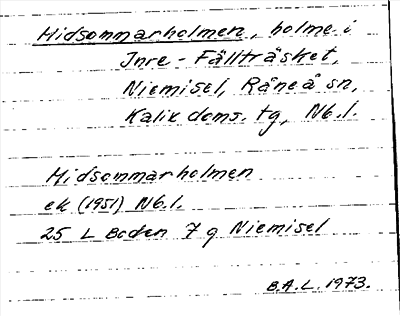 Midsommarholmen, holme i
Inre-Fällträsket,
Niemisel, Råneå sn,
Kalix doms. tg, Nb.l.
Midsommarholmen
ek (1951) Nb.l.
25 L Boden 7 g Niemisel
B.A.L. 1973.